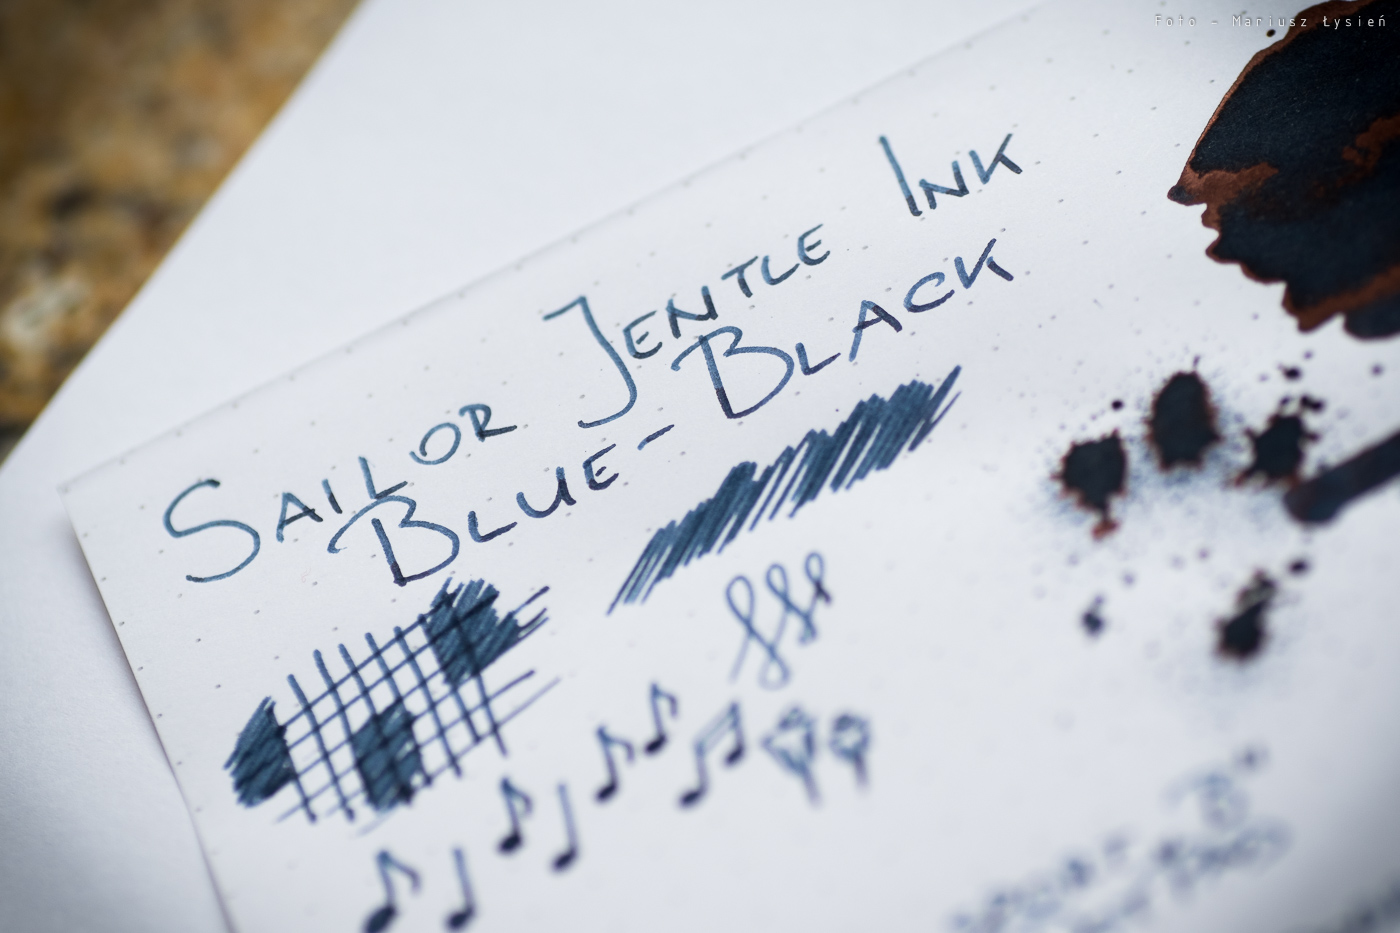 Foto - Mariusz Łysień
Sailor Jentle Ink
Blue-Black